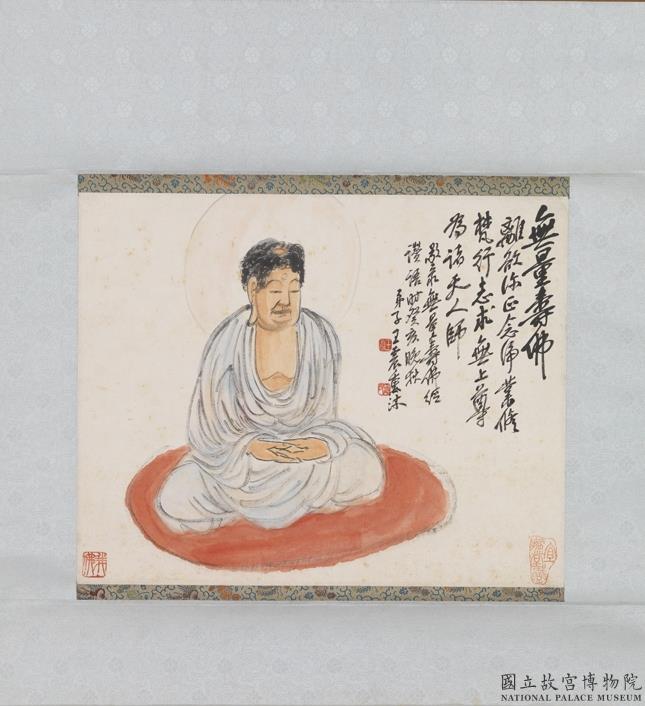 無量壽佛
離欲深正念淨業修
梵行志求無上尊
為諸天人師
敬录無量壽佛經
讚語時癸亥晚秋
弟子王震熏沐
國立故宮博物院
NATIONAL PALACE MUSEUM